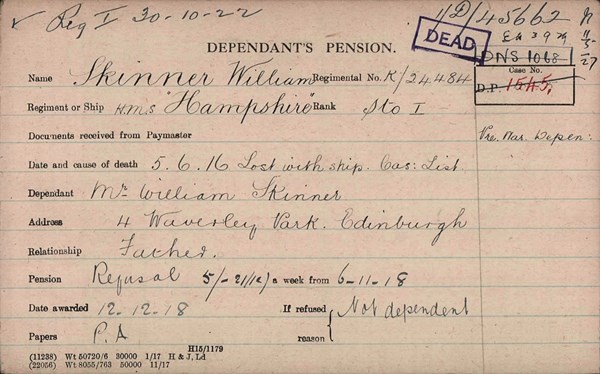 ✓ Reg I 30-10-22
11D/45662 N
DEAD
11/5/27
DNS 1068
Case No.
D.P. 1545
DEPENDANT'S PENSION.
Name Skinner William Regimental No. K/24484
Regiment or Ship H.M.S "Hampshire" Rank Sto I
Documents received from Paymaster
Pre. War. Depen:
Date and cause of death 5.6.16 Lost with ship. Cas: List
Dependant Mr William Skinner
Address 4 Waverley Park. Edinburgh
Relationship Father.
Pension Refusal 5/- 21/12/ a week from 6-11-18
Date awarded 12-12-18 If refused reason { Not dependent
Papers P.A
H15/1179
(11238) Wt 50720/6 30000 1/17 H & J, Ld
(22056) Wt 8055/763 50000 11/17